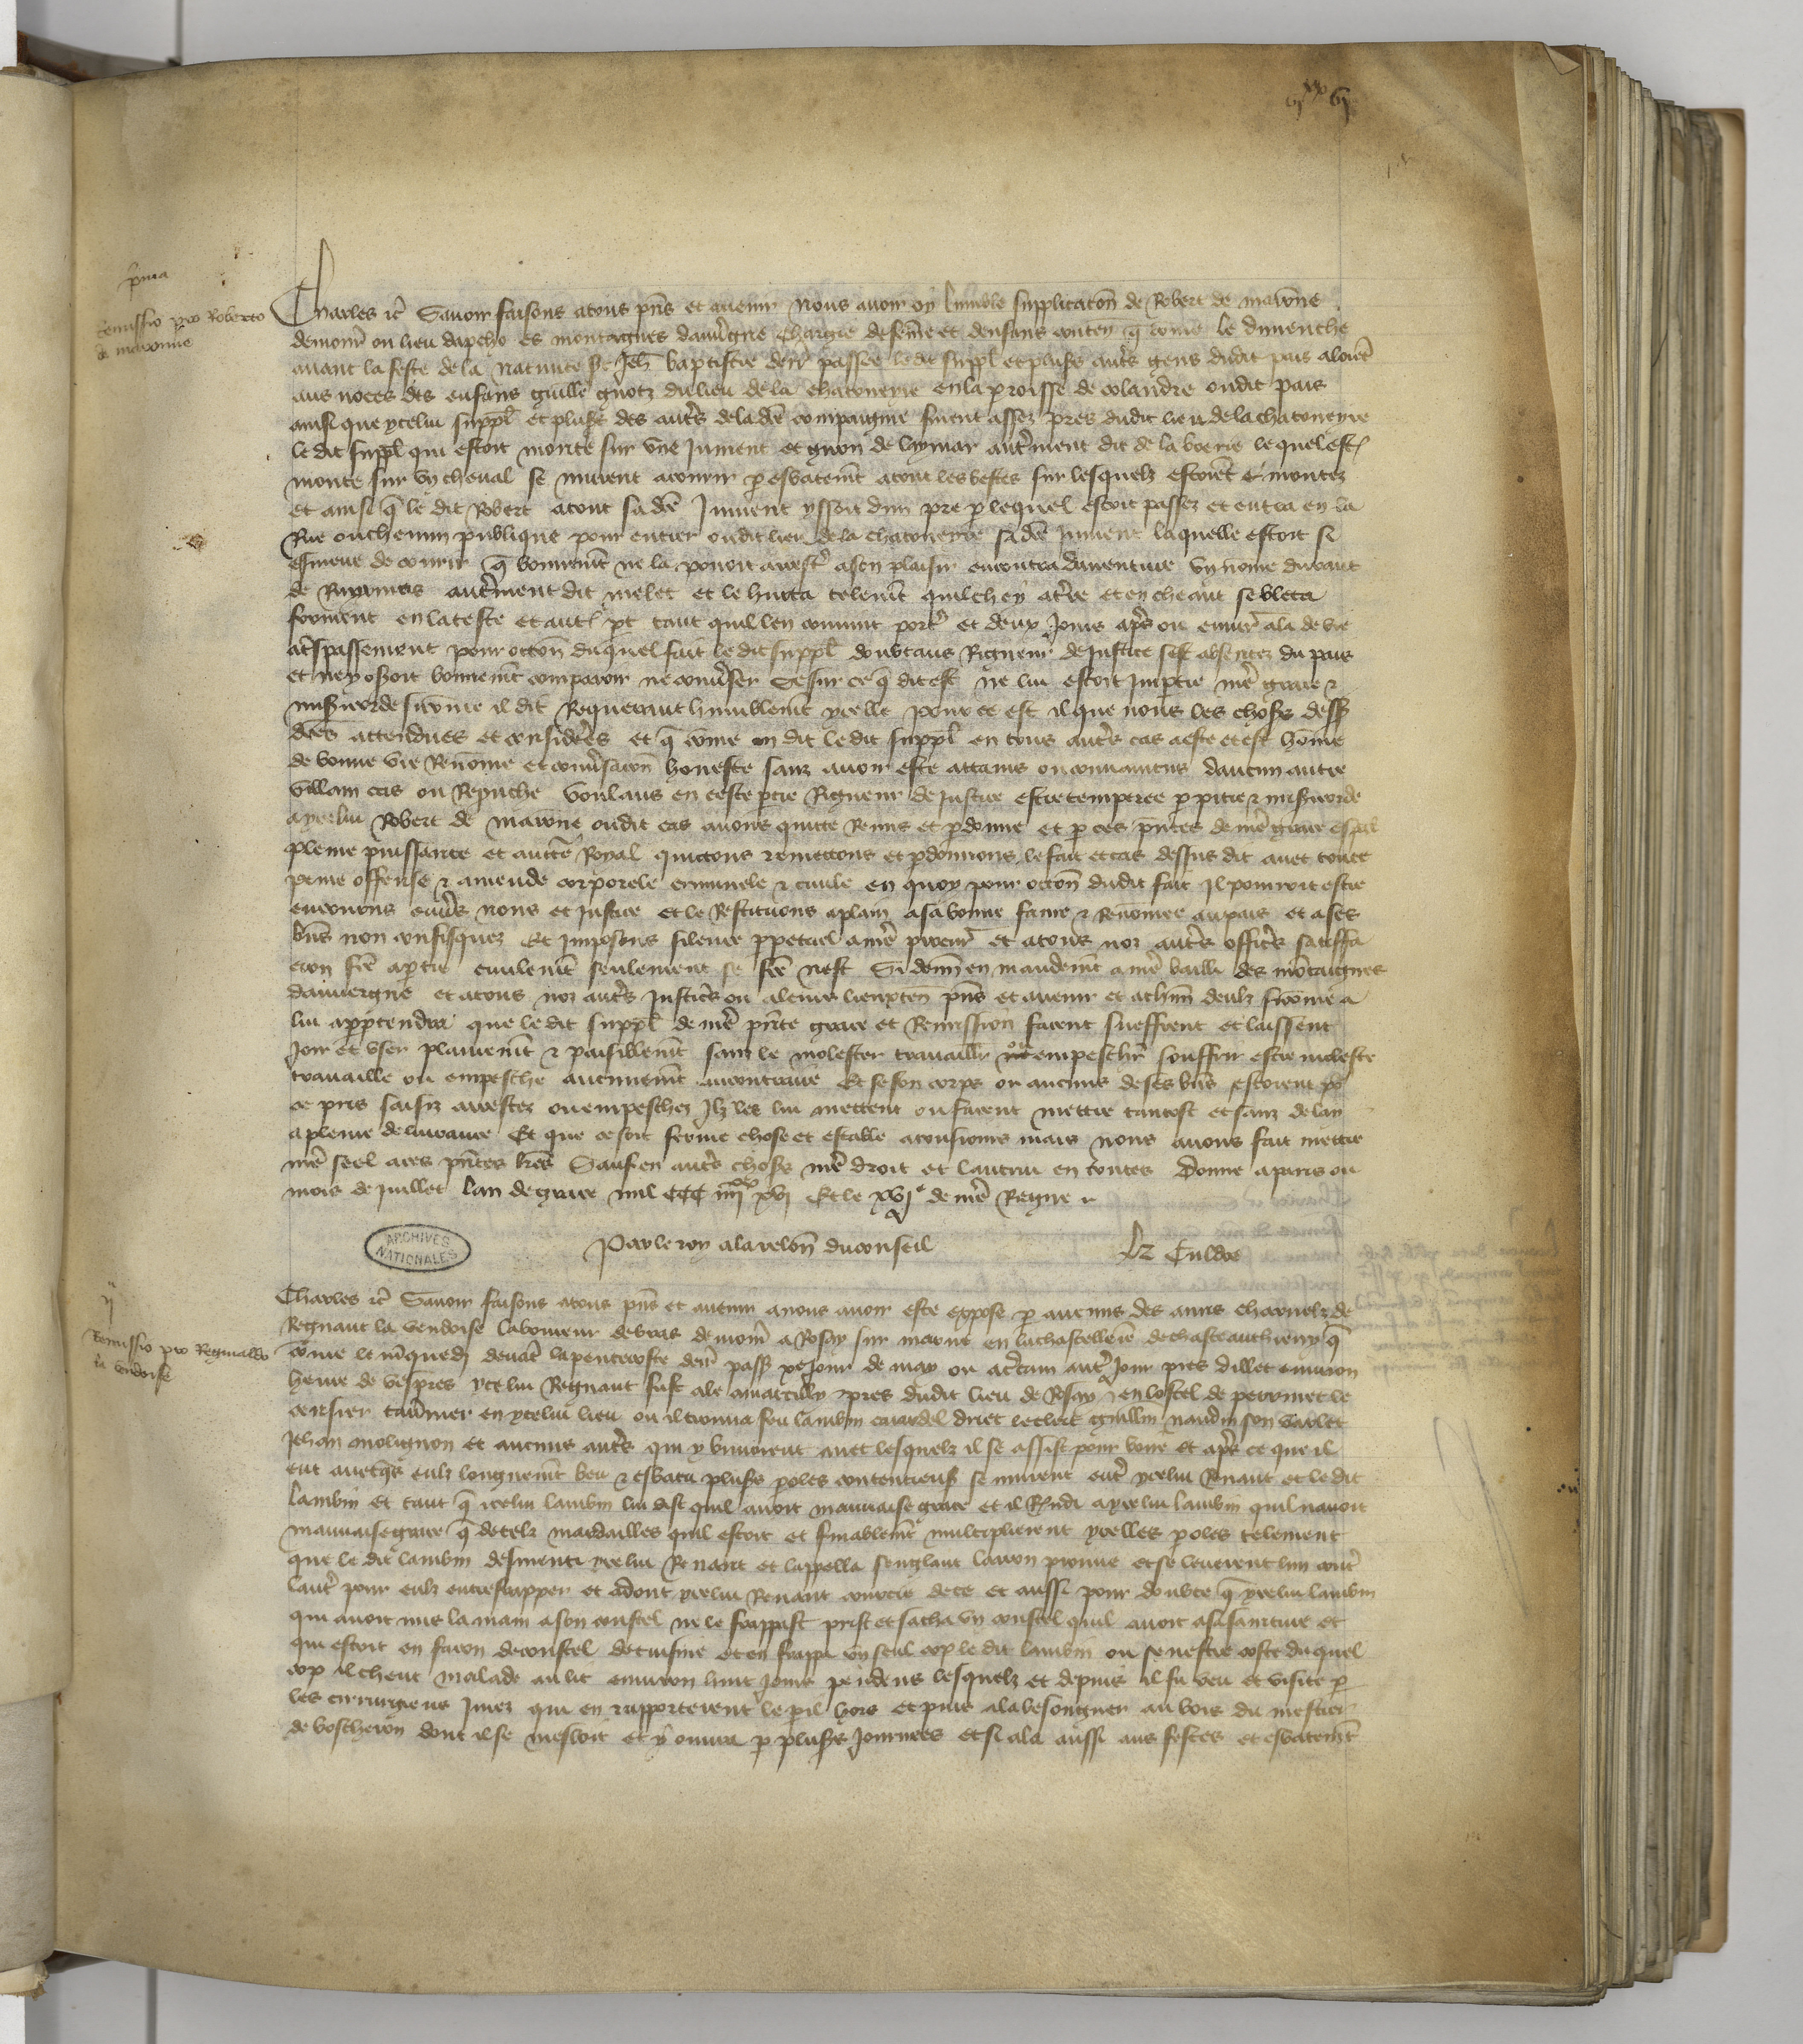 vjxx vj
prima
Remissio pro Roberto
de maronne
Charles etc Savoir faisons a tous pns et avenir Nous avoir oy lumble supplicacon de Robert de maronne
demorat ou lieu dapcho es montaignes dauvergne chargie de feme et denfans conten que come le dimenche
avant la feste de la nativite st Jeh baptistre derr passee le dit suppl et plus autrs gens dudit pais alerent
aus noces des enfans guille guotz du lieu de la chatoneyre en la proisse de colandre oudit pais
ainsi que ycelui suppl et plus des autrs de la de compaignie furent assez pres dudit lieu de la chatoneyre
le dit suppl qui estoit monte sur une jument et autrement dit de la boerie le quel est
monte sur un cheval se murent a courir p esbatemt a tout les bestes sur lesquelz estoient montez
et ainsi q le dit Robert a tout sa de Jument yssoit dun pre p lequel estoit passez et entra en la
Rue ou chemin publique pour entrer oudit lieu de la chatoneyre sa de Jument laquelle estoit si
esmeue de courir q bonnemt ne la povoit arrester a son plaisir encontra daventure un nome durant
de autrement dit melet et le hurta telemt quil chey a tre et en cheant se bleca
forment en la teste et aut pt tant quil len convint porter et deux Jours aprs ou envir ala de vie
a trspassement pour occon duquel fait le dit suppl doubtans Rigueur de Justice sest absentez du pais
et ne y oseroit bonnemt comparoir ne converser Se sur ce q dit est ne lui estoit Impartie nre grace et
misericorde sicome il dit Requerant humblemt ycelle pour ce est il que nous les choses dess
dces attendues et considerees et q come on dit le dit suppl en tous autrs cas a este et est home
de bonne vie Renomee et conversacion honeste sanz avoir este attains ou convaincus daucun autre
villain cas ou Reprouche voulans en ceste ptie Rigueur de justice estre tempree p pitie et misericorde
a ycelui Robert de maronne oudit cas avons quitte Remis et pdonne et p ces pntes de nre grace espal
pleine puissance et aucte Royal quictons remettons et pdonnons le fait et cas dessus dit avec toute
peine offense et amende corporele criminele et civile en quoy pour occon dudit fait Il pourroit estre
encourus envers nous et Justice et le Restituons a plain a sa bonne fame et Renomee au pais et a ses
bns non confisquez Et Imposons silence ppetuel a nre procur et a tous noz autrs officrs satiffa
cion fce a ptie civilemt seulement se fce nest Si donn en mandemt a nre bailli des motaignes
dauvergne et a tous noz autrs Justicrs ou a leurs lieuxten pns et avenir et a chun deulz sicome a
lui apptendra que le dit suppl de nre pnte grace et Remission facent sueffrent et laissent
Joir et user plainemt et paisiblemt sanz le molester travaillr ou empeschr souffrir estre moleste
travaille ou empesche aucunemt au contraire Et se son corps ou aucuns de ses bns estoient po
ce pris saisiz arrestez ou empeschez Ilz les lui mettent ou facent mettre tantost et sanz delay
a pleine delivrance Et que ce soit ferme chose et estable a tousiours mais nous avons fait mettre
nre seel a ces pntes lres Sauf en autrs choses nre droit et lautrui en toutes Donne a paris ou
mois de Juillet lan de grace mil CCC iiiixx xvj Et le xvje de nre Regne
Par le roy a la relon du conseil
Culdoe
ARCHIVES NATIONALES
ij
Remissio pro Reginaldo
la vendoise
Charles etc Savoir faisons a tous pns et avenir a nous avoir este expose p aucuns des amis charnelz de
Regnaut la vendoise laboureur de bras demort a Rosay sur marne en la chastellerie de chasteauthierry q
come le mquedj devat la penthecoste derr pass xe Jour de may ou a ctain autr Jour pres dillec environ
heure de vespres ycelui Regnaut fust ale a pres dudit lieu de Rosay en lostel de perrinet le
censier tavrnier en ycelui lieu ou il trouva feu lambin leclerc guillin naudin son varlet
Jehan molignon et aucuns autrs qui y buvoient avec lesquelz il se assist pour boire et aprs ce que il
eut avecqs eulz longuemt beu et esbatu pluss poles contencieus se murent entr ycelui Renaut et le dit
lambin et tant q icelui lambin lui dist quil avoit mauvaise grace et il Rndi a ycelui lambin quil navoit
mauvaise grace q de telz merdailles quil estoit et finablemt multiplierent ycelles poles telement
que le dit lambin desmenti ycelui Renaut et lappella senglant larron prouve et se leverent lun contr
lautr pour eulz entrefrapper et adont ycelui Renaut courcie de ce et aussi pour doubte q ycelui lambin
qui avoit mis la main a son coustel ne le frappast prist et sacha un coustel quil avoit a sa sainture et
qui estoit en facon de coustel de cuisine et en frappa un seul cop le dit lambin ou senestre coste duquel
cop il cheut malade au lit environ huit Jours pendens lesquelz et depuis il fu veu et visite p
les cirurgiens Jurez qui en rapporterent le pil hors et puis ala besongner au bois du mestier
de boscheron dont il se mesloit et y ouvra p pluss Journees et si ala aussi aus festes et esbatemt